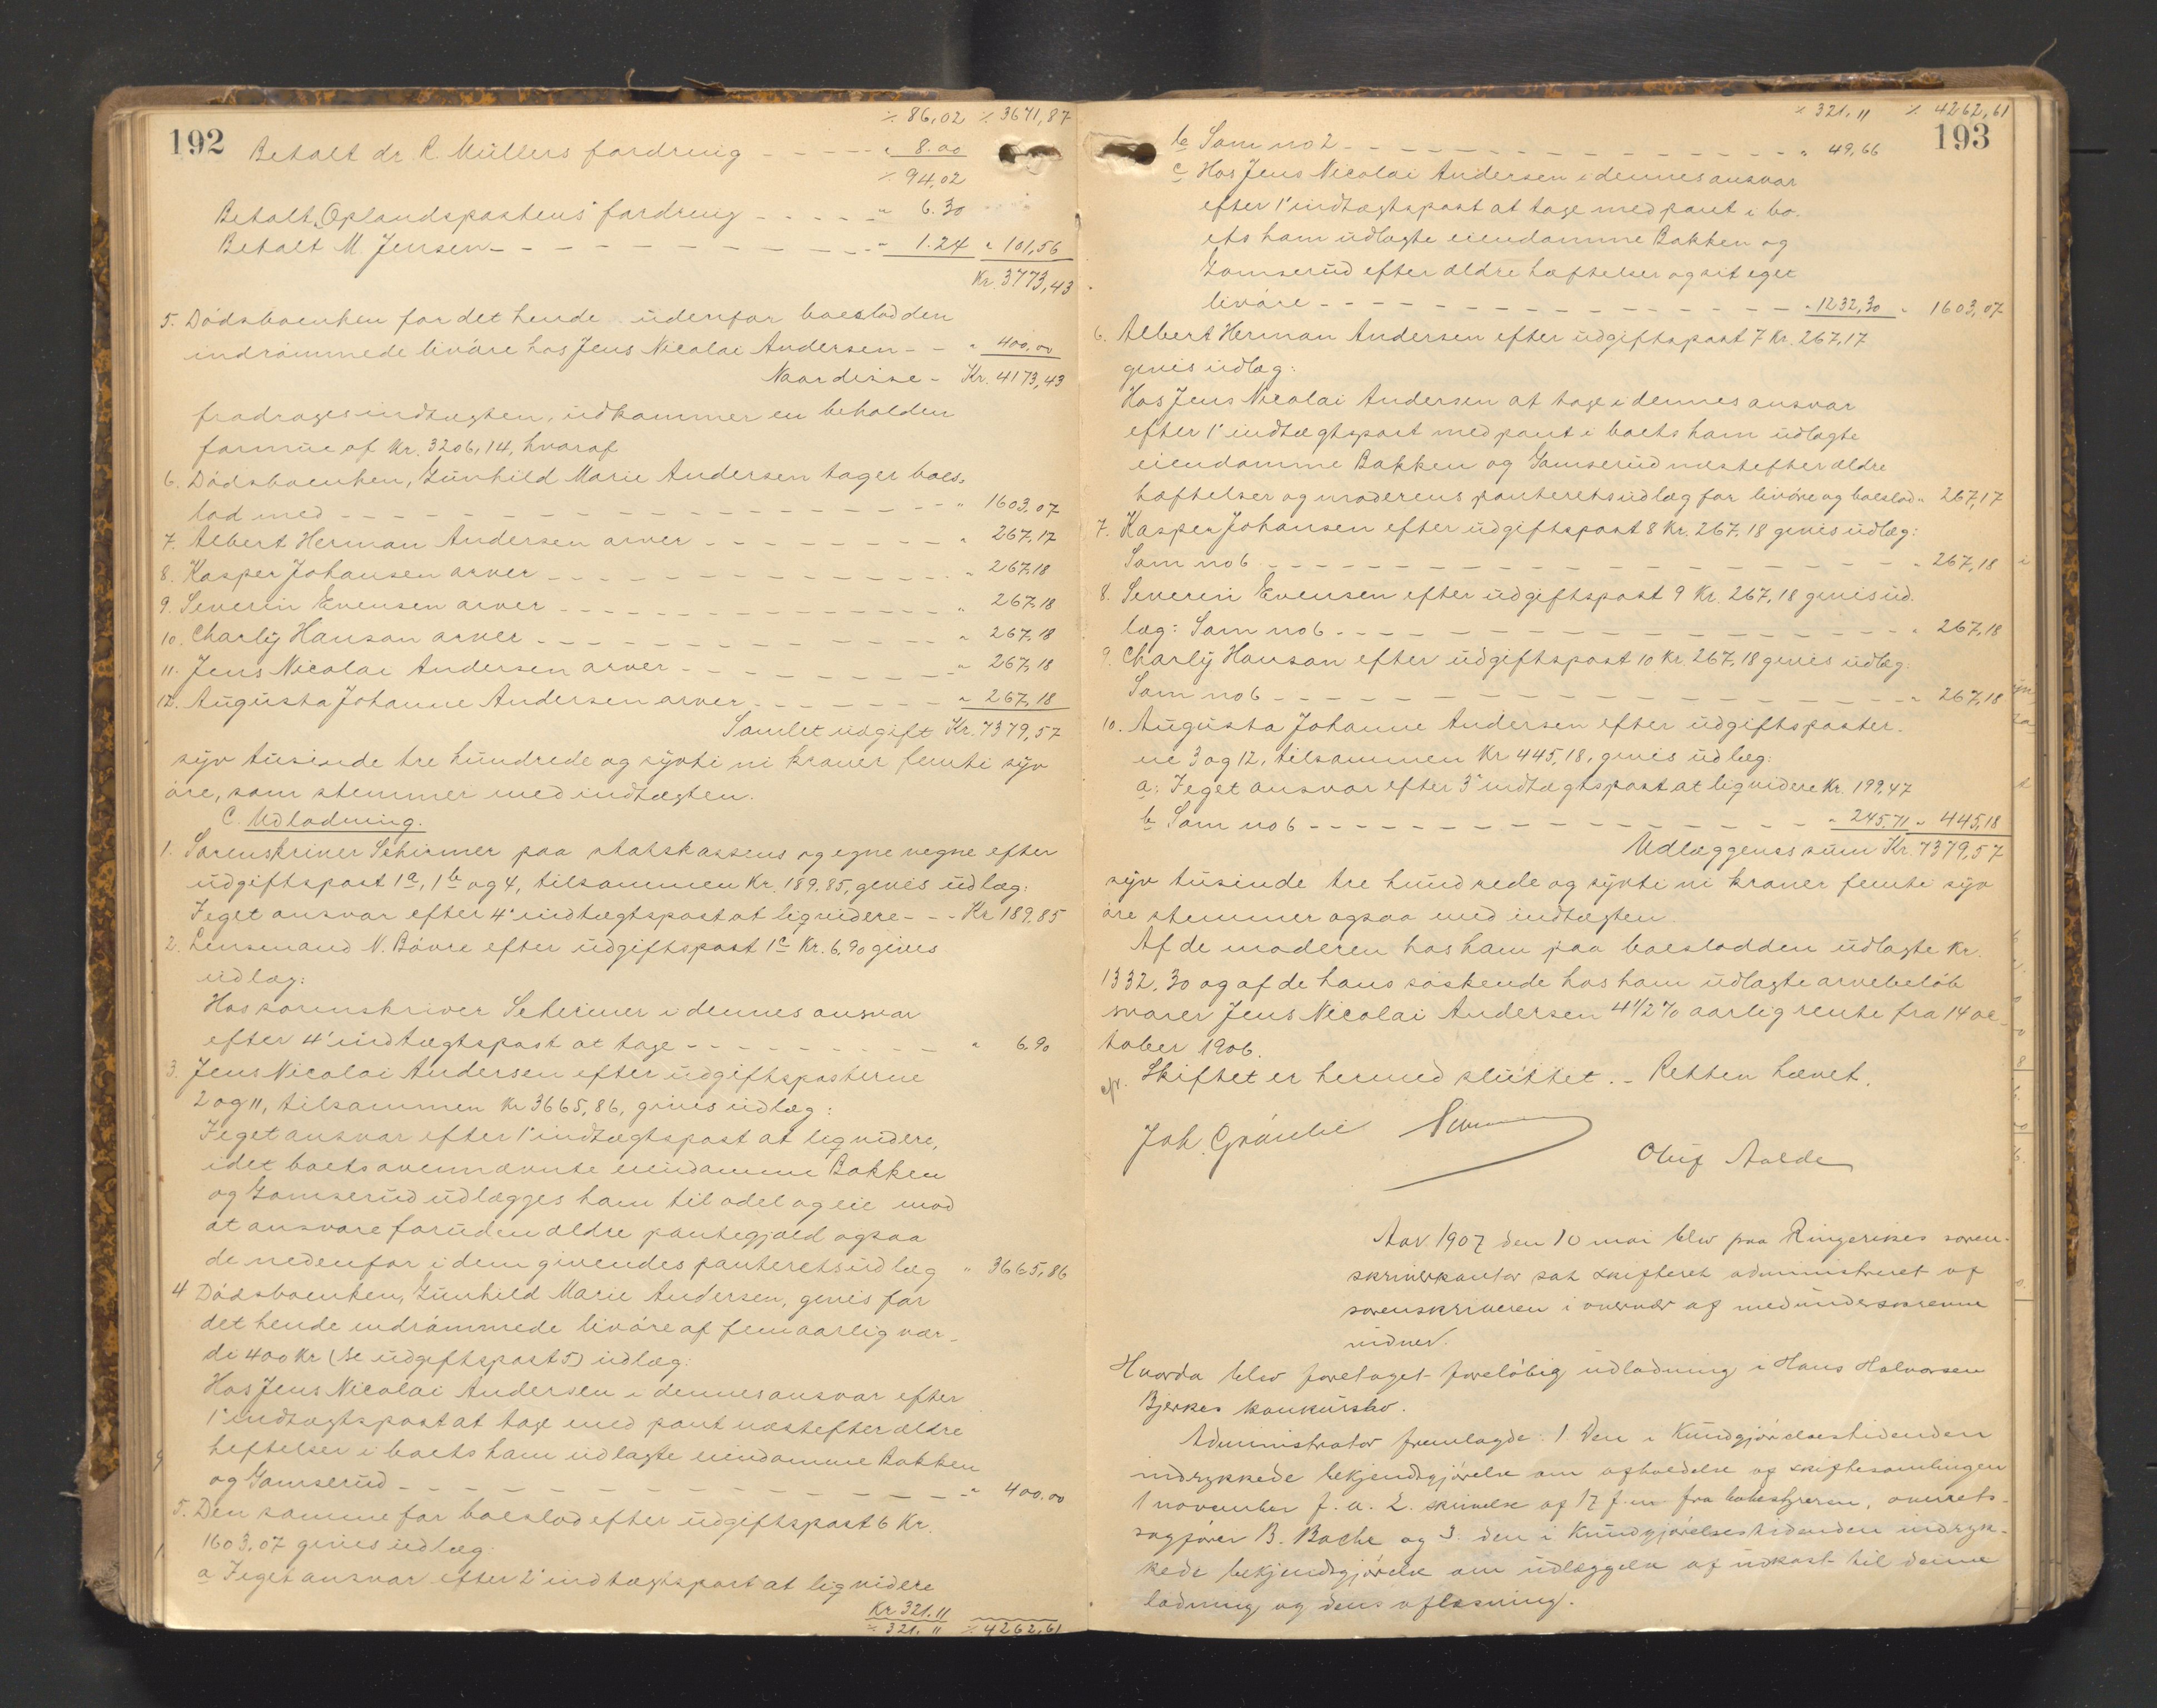 192
٪ 86,02 ٪ 3671,87
Betalt dr. R. Müllers fordring - - - - " 8.00
٪ 94,02
Betalt „Oplandspostens" fordring - - - - " 6.30
Betalt M. Jensen - - - - - - - - - - " 1.24 " 101,56
Kr. 3773,43
5. Dödsboenken for det hende udenfor boeslodden
indrömmede livöre hos Jens Nicolai Andersen - - " 400.00
Naar disse - Kr. 4173,43
fradrages indtægten, udkommer en beholden
formue af Kr. 3206,14, hvoraf
6. Dödsboenken, Gunhild Marie Andersen tager boes-
lod med - - - - - - - - - - " 1603.07
7. Albert Herman Andersen arver - - - - - - " 267,17
8. Kasper Johansen arver - - - - - - - - " 267,18
9. Severin Evensen arver - - - - - - - - " 267,18
10. Charly Hanson arver - - - - - - - - " 267,18
11. Jens Nicolai Andersen arver - - - - - - " 267,18
12. Augusta Johanne Andersen arver - - - - - " 267,18
Samlet udgift Kr. 7379,57
syv tusinde tre hundrede og sytti ni kroner femti syv
öre, som stemmer med indtægten.
C. Udlodning.
1. Sorenskriver Schirmer paa statskassens og egne vegne efter
udgiftspost 1a, 1b og 4, tilsammen Kr. 189.85, gives udlæg:
I eget ansvar efter 4' indtægtspost at liqvidere - - - Kr 189.85
2. Lensmand N. Bövre efter udgiftspost 1c Kr. 6,90 gives
udlæg:
Hos sorenskriver Schirmer i dennes ansvar
efter 4' indtægtspost at tage - - - - - - - " 6.90
3. Jens Nicolai Andersen efter udgiftsposterne
2 og 11, tilsammen Kr 3665,86, gives udlæg:
I eget ansvar efter 1' indtægtspost at liqvidere,
idet boets ovennævnte eiendomme Bakken
og Gomserud udlægges ham til odel og eie mod
at ansvare foruden ældre pantegjæld ogsaa
de nedenfor i dem givendes panteretsudlæg " 3665,86
4 Dödsboenken, Gunhild Marie Andersen, gives for
det hende indrömmede livöre af femaarlig vær-
di 400 Kr (se udgiftspost 5) udlæg:
Hos Jens Nicolai Andersen i dennes ansvar efter
1' indtægtspost at tage med pant næstefter ældre
heftelser i boets ham udlagte eiendomme Bakken
og Gomserud - - - - - - - - - - - " 400.00
5. Den samme for boeslod efter udgiftspost 6 Kr.
1603,07 gives udlæg:
a I eget ansvar efter 2' indtægtspost at liqvidere
Kr. 321.11
٪ 321.11 ٪ 4262,61
193
٪ 321.11 ٪ 4262,61
b Som no 2 - - - - - - - - - - " 49,66
c Hos Jens Nicolai Andersen i dennes ansvar
efter 1' indtægtspost at tage med pant i bo-
ets ham udlagte eiendomme Bakken og
Gomserud efter ældre hæftelser og sit eget
livöre - - - - - - - - - - " 1232,30 " 1603,07
6. Albert Herman Andersen efter udgiftspost 7 Kr. 267,17
gives udlæg:
Hos Jens Nicolai Andersen at tage i dennes ansvar
efter 1' indtægtspost med pant i boets ham udlagte
eiendomme Bakken og Gomserud næstefter ældre
hæftelser og moderens panteretsudlæg for livöre og boeslod " 267,17
7. Kasper Johansen efter udgiftspost 8 Kr. 267.18 gives udlæg:
Som no 6 - - - - - - - - - - " 267,18
8. Severin Evensen efter udgiftspost 9 Kr. 267,18 gives ud-
læg: Som no 6 - - - - - - - - - - " 267,18
9. Charly Hanson efter udgiftspost 10 Kr. 267,18 gives udlæg:
Som no 6 - - - - - - - - - - " 267,18
10. Augusta Johanne Andersen efter udgiftsposter-
ne 3 og 12, tilsammen Kr 445,18, gives udlæg:
a: I eget ansvar efter 3' indtægtspost at liqvidere Kr. 199,47
b Som no 6 - - - - - - - - " 245.71 " 445,18
Udlæggenes sum Kr. 7379,57
syv tusinde tre hundrede og sytti ni kroner femti syv
öre stemmer ogsaa med indtægten.
Af de moderen hos ham paa boeslodden udlagte Kr.
1332.30 og af de hans söskende hos ham udlagte arvebelöb
svarer Jens Nicolai Andersen 4 1/2 % aarlig rente fra 14 oc-
tober 1906.
Skiftet er hermed sluttet. - Retten hævet.
Joh. Grönlie
Olüf Aalde
Aar 1907 den 10 mai blev paa Ringerikes soren-
skriverkontor sat skifteret administreret af
sorenskriveren i overvær af medundersokrevne
vidner.
Hvorda blev foretaget foreløbig udlodning i Hans Halvorsen
Bjerkes konkursbo.
Administrator fremlagde: 1. Den i Kundgjørelsestidenden
indrykkede bekjendtgjørelse om afholdelse af skiftesamlingen
1 november f. a. 2. skrivelse af 17 f. m. fra bobestyreren, overrets-
sagfører B. Bache og 3. den i Kundgjørelsestidenden indryk-
kede bekjendtgjørelse om udlæggelse af udkast til denne
lodning og dens aflæsning.